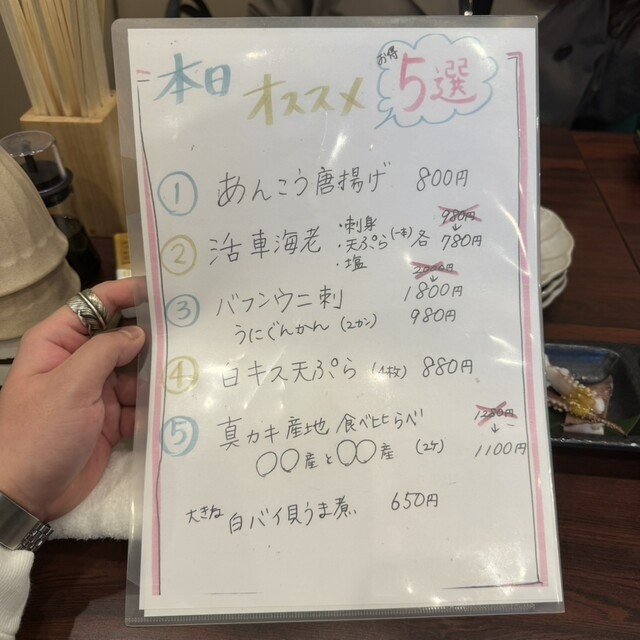 本日
オススメ
お得
5選
① あんこう唐揚げ 800円
② 活車海老 ・刺身 ・天ぷら(一本) ・塩 各 980円→780円
③ バフンウニ刺 2000円→1800円
うにぐんかん (2カン) 980円
④ 白キス天ぷら (4枚) 880円
⑤ 真カキ産地 食べ比らべ 1280円
〇〇産と〇〇産 (2ケ) →1100円
大きな 白バイ貝うま煮 650円